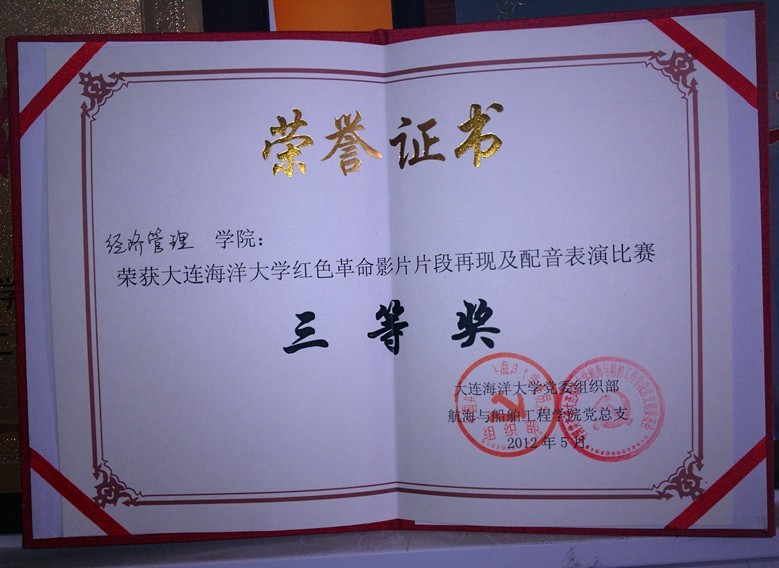 荣誉证书
经济管理 学院：
荣获大连海洋大学红色革命影片片段再现及配音表演比赛
三等奖
大连海洋大学党委组织部
航海与船舶工程学院党总支
2012年5月
组织部